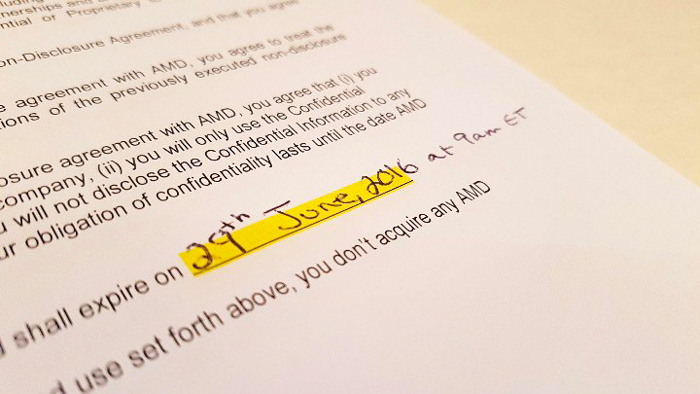 nerships and
ntial or Proprietary
on-Disclosure Agreement, and that you agree
e agreement with AMD, you agree to treat the
ions of the previously executed non-disclosure
osure agreement with AMD, you agree that (i) you
company, (ii) you will only use the Confidential
u will not disclose the Confidential Information to any
ur obligation of confidentiality lasts until the date AMD
shall expire on 29th June, 2016 at 9am ET
d use set forth above, you don't acquire any AMD